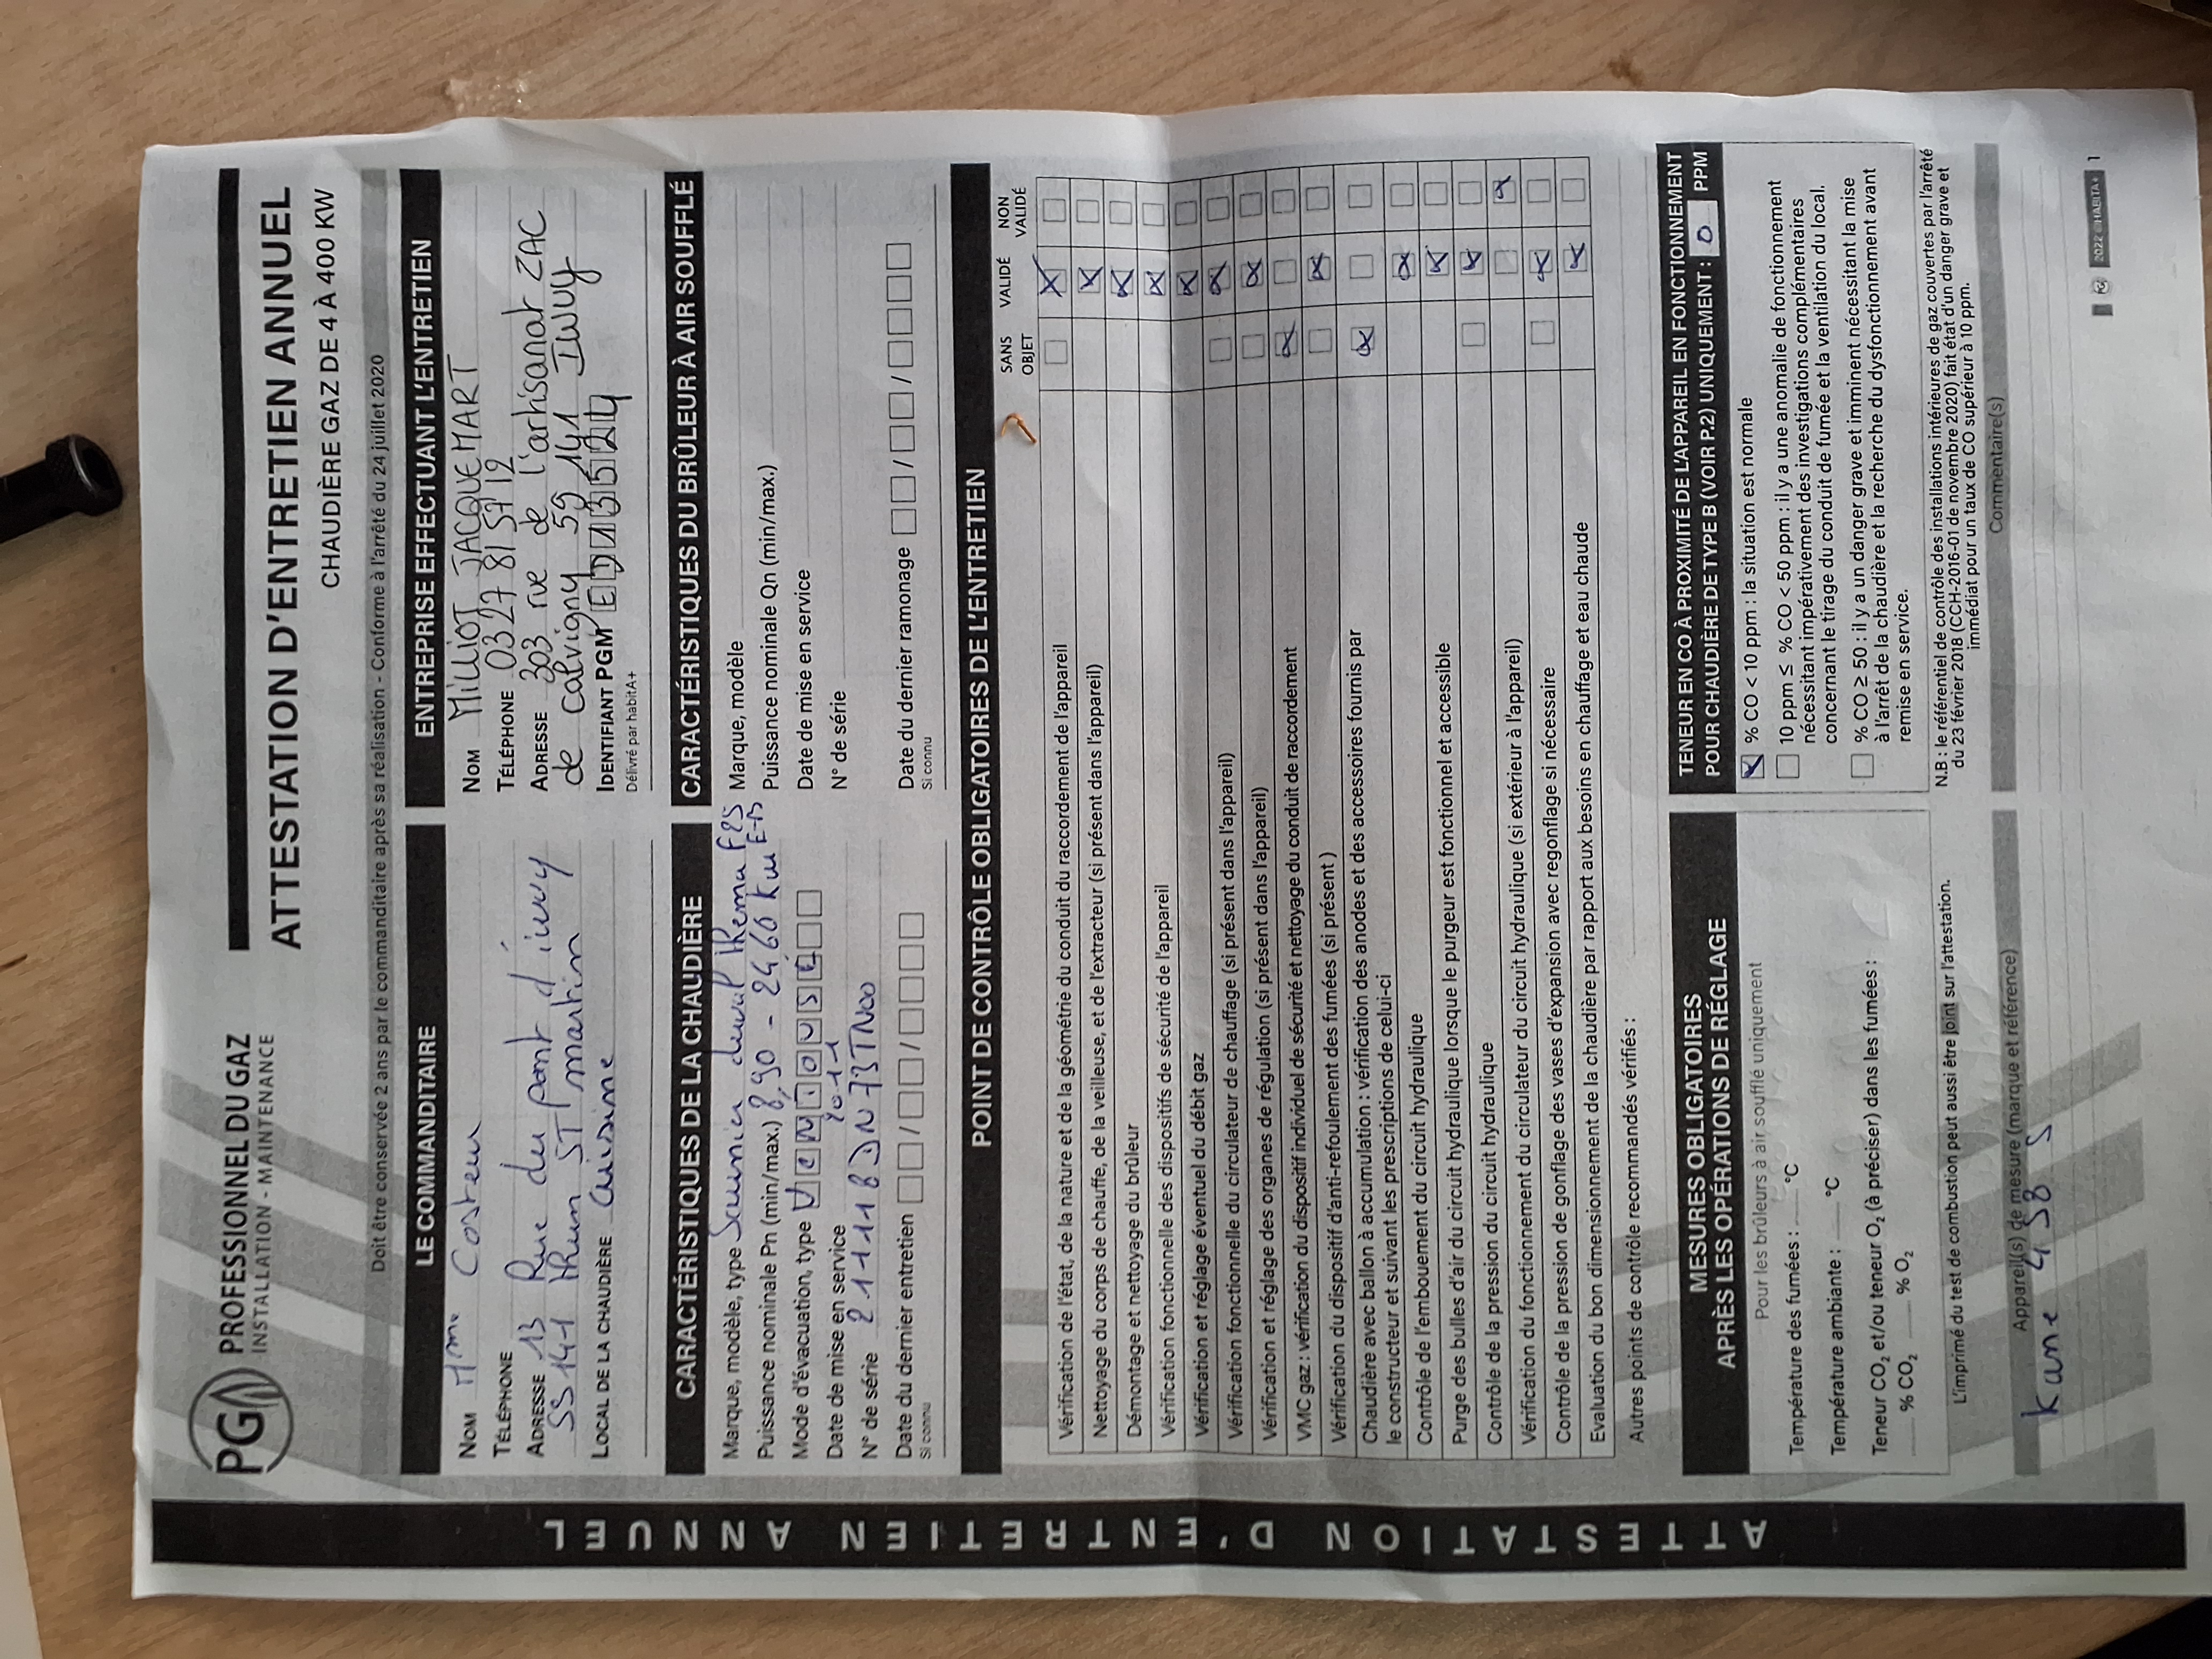 PGN PROFESSIONNEL DU GAZ
INSTALLATION - MAINTENANCE
ATTESTATION D'ENTRETIEN ANNUEL
CHAUDIÈRE GAZ DE 4 À 400 KW
Doit être conservée 2 ans par le commanditaire après sa réalisation - Conforme à l'arrêté du 24 juillet 2020
LE COMMANDITAIRE
NOM Mme Costeur
TÉLÉPHONE
ADRESSE 13 Rue du pont d'iwuy
59 141 thun ST martin
LOCAL DE LA CHAUDIÈRE Cuisine
ENTREPRISE EFFECTUANT L'ENTRETIEN
NOM MILLIOT JACQUEMART
TÉLÉPHONE 03 27 81 57 12
ADRESSE 303 rue de l'artisanat ZAC
de calvigny 59 141 Iwuy
IDENTIFIANT PGM
Délivré par habitA+
CARACTÉRISTIQUES DE LA CHAUDIÈRE
Marque, modèle, type Saunier duval thema F25 E-B
Puissance nominale Pn (min/max.) 8,90 - 24,60 Kw
Mode d'évacuation, type VENTOUSE
Date de mise en service 2011
N° de série 211118DN73TN00
Date du dernier entretien
Si connu
CARACTÉRISTIQUES DU BRÛLEUR À AIR SOUFFLÉ
Marque, modèle
Puissance nominale Qn (min/max.)
Date de mise en service
N° de série
Date du dernier ramonage
Si connu
POINT DE CONTRÔLE OBLIGATOIRES DE L'ENTRETIEN
SANS OBJET VALIDÉ NON VALIDÉ
Vérification de l'état, de la nature et de la géométrie du conduit du raccordement de l'appareil
Nettoyage du corps de chauffe, de la veilleuse, et de l'extracteur (si présent dans l'appareil)
Démontage et nettoyage du brûleur
Vérification fonctionnelle des dispositifs de sécurité de l'appareil
Vérification et réglage éventuel du débit gaz
Vérification fonctionnelle du circulateur de chauffage (si présent dans l'appareil)
Vérification et réglage des organes de régulation (si présent dans l'appareil)
VMC gaz : vérification du dispositif individuel de sécurité et nettoyage du conduit de raccordement
Vérification du dispositif d'anti-refoulement des fumées (si présent )
Chaudière avec ballon à accumulation : vérification des anodes et des accessoires fournis par
le constructeur et suivant les prescriptions de celui-ci
Contrôle de l'embouement du circuit hydraulique
Purge des bulles d'air du circuit hydraulique lorsque le purgeur est fonctionnel et accessible
Contrôle de la pression du circuit hydraulique
Vérification du fonctionnement du circulateur du circuit hydraulique (si extérieur à l'appareil)
Contrôle de la pression de gonflage des vases d'expansion avec regonflage si nécessaire
Evaluation du bon dimensionnement de la chaudière par rapport aux besoins en chauffage et eau chaude
Autres points de contrôle recommandés vérifiés :
MESURES OBLIGATOIRES
APRÈS LES OPÉRATIONS DE RÉGLAGE
Pour les brûleurs à air soufflé uniquement
Température des fumées : °C
Température ambiante : °C
Teneur CO2 et/ou teneur O2 (à préciser) dans les fumées :
% CO2 % O2
L'imprimé du test de combustion peut aussi être joint sur l'attestation.
TENEUR EN CO À PROXIMITÉ DE L'APPAREIL EN FONCTIONNEMENT
POUR CHAUDIÈRE DE TYPE B (VOIR P.2) UNIQUEMENT : 0 PPM
% CO < 10 ppm : la situation est normale
10 ppm ≤ % CO < 50 ppm : il y a une anomalie de fonctionnement
nécessitant impérativement des investigations complémentaires
concernant le tirage du conduit de fumée et la ventilation du local.
% CO ≥ 50 : il y a un danger grave et imminent nécessitant la mise
à l'arrêt de la chaudière et la recherche du dysfonctionnement avant
remise en service.
N.B : le référentiel de contrôle des installations intérieures de gaz couvertes par l'arrêté
du 23 février 2018 (CCH-2016-01 de novembre 2020) fait état d'un danger grave et
immédiat pour un taux de CO supérieur à 10 ppm.
Appareil(s) de mesure (marque et référence)
Kane 458 S
Commentaire(s)
2022 ©HABITA+ 1
ATTESTATION D'ENTRETIEN ANNUEL